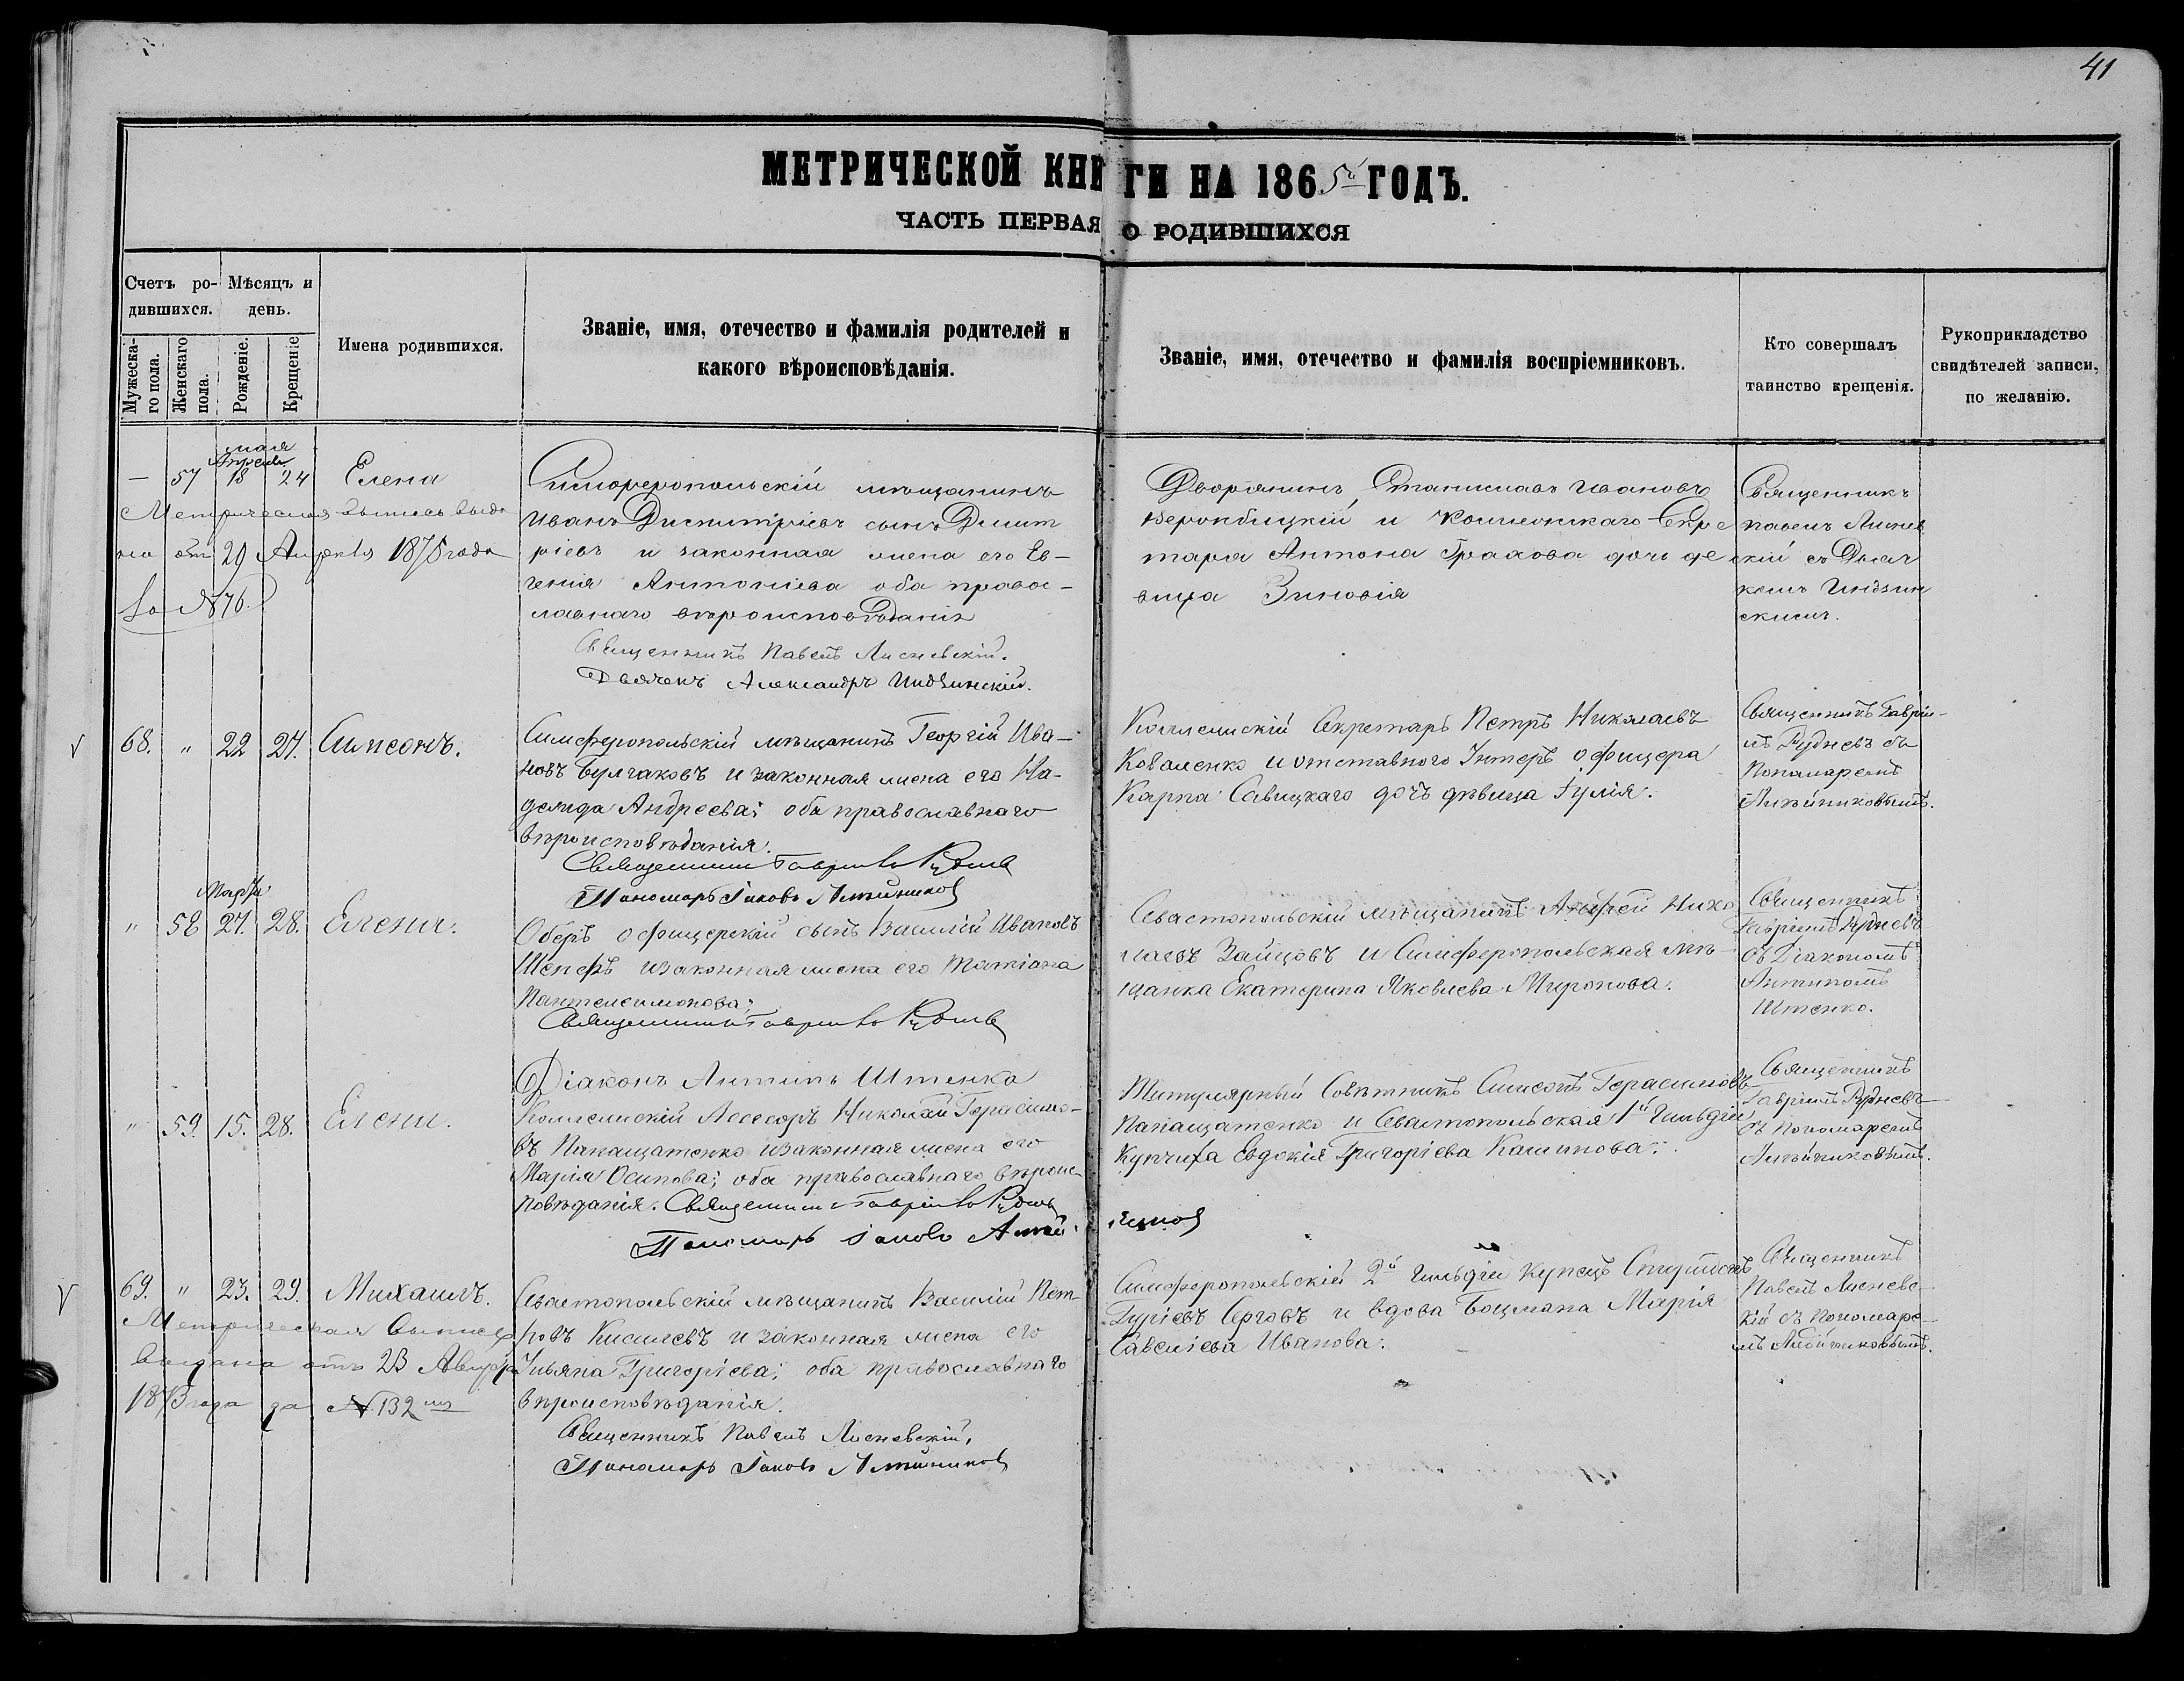 41
МЕТРИЧЕСКОЙ КНИГИ НА 1865й ГОДЪ.
ЧАСТЬ ПЕРВАЯ О РОДИВШИХСЯ
Счетъ ро-
дившихся.
Мѣсяцъ и
день.
Мужеска-
го пола.
Женскаго
пола.
Рожденіе.
Крещеніе
Имена родившихся.
Званіе, имя, отечество и фамилія родителей и
какого вѣроисповѣданія.
Званіе, имя, отечество и фамилія воспріемниковъ.
Кто совершалъ
таинство крещенія.
Рукоприкладство
свидѣтелей записи,
по желанію.
мая
Апреля
— 57 18 24 Елена
Метрическая выпись выда
на отъ 29 Апрѣля 1875 года
за № 76.
Симферопольскій мѣщанинъ
Иванъ Димитріевъ сынъ Димит
ріевъ и законная жена его Ев-
генія Антоніева оба правос-
лавнаго вѣроисповѣданія
Священникъ Павелъ Лисневскій.
Дьячекъ Александръ Индзинскій.
Дворянинъ Станиславъ Ивановъ
и Коллежскаго Секре
таря Антона Грахова дочь де
вица Зиновія
Священникъ
Павелъ Лиснев
скій съ Дьяч
комъ Индзин
скимъ.
68. " 22 27. Симеонъ.
Симферопольскій мѣщанинъ Георгій Ива-
новъ Булгаковъ и законная жена его На-
дежда Андреева; оба православнаго
вѣроисповѣданія.
Священникъ Гавріилъ Рудневъ
Пономарь Іаковъ
Коллежскій Секретарь Петръ Николаевъ
Коваленко и отставного Унтеръ офицера
Карпа Савицкаго дочь дѣвица Іулія.
Священникъ Гаврії-
лъ Рудневъ съ
Пономаремъ
Марта
" 58 27. 28. Елена.
Оберъ офицерскій сынъ Василій Ивановъ
Шепфъ и законная жена его Татіана
Пантелеимонова;
Священникъ Гавріилъ Рудневъ
Діаконъ Антипъ Штенко
Севастопольскій мѣщанинъ Андрей Нико
лаевъ Зайцовъ и Симферопольская мѣ-
щанка Екатерина Яковлева Миронова.
Священникъ
Гавріилъ Рудневъ
съ Діакономъ
Антипомъ
Штенко.
" 59. 15. 28. Елена.
Коллежскій Асессоръ Николай Герасимо-
въ Панащатенко и законная жена его
Марія Осипова; оба православнаго вѣроис-
повѣданія. Священникъ Гавріилъ Рудневъ
Пономарь Іаковъ
Титулярный Совѣтникъ Симеонъ Герасимовъ
Панащатенко и Севастопольская 1й Гильдіи
Купчиха Евдокія Григоріева Калинова.
Священникъ
Гавріилъ Рудневъ
съ Пономаремъ
69. " 23. 29. Михаилъ.
Метрическая выпись
выдана отъ 23 Августа
1873 года за № 132
Севастопольскій мѣщанинъ Василій Пет-
ровъ Киселевъ и законная жена его
Ульяна Григоріева; оба православнаго
вѣроисповѣданія.
Священникъ Павелъ Лисневскій.
Пономарь Іаковъ
Симферопольскій 2й Гильдіи Купецъ
Гуріевъ Серговъ и вдова Боцмана Марія
Савеліева Иванова.
Священникъ
Павелъ Лисневс-
кій съ Пономаре-
мъ